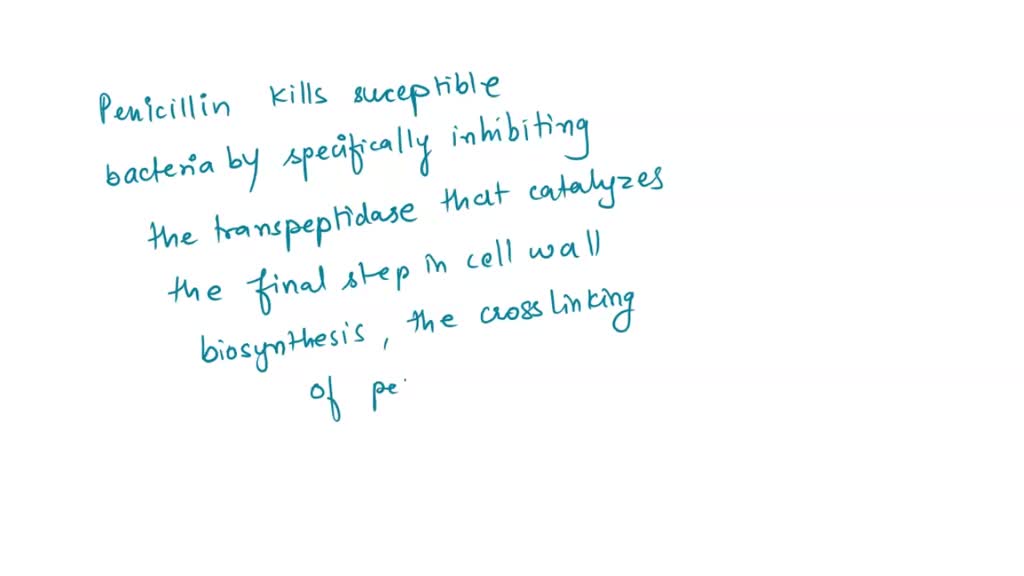 Penicillin kills suceptible
bacteria by specifically inhibiting
the transpeptidase that catalyzes
the final step in cell wall
biosynthesis, the cross linking
of pe